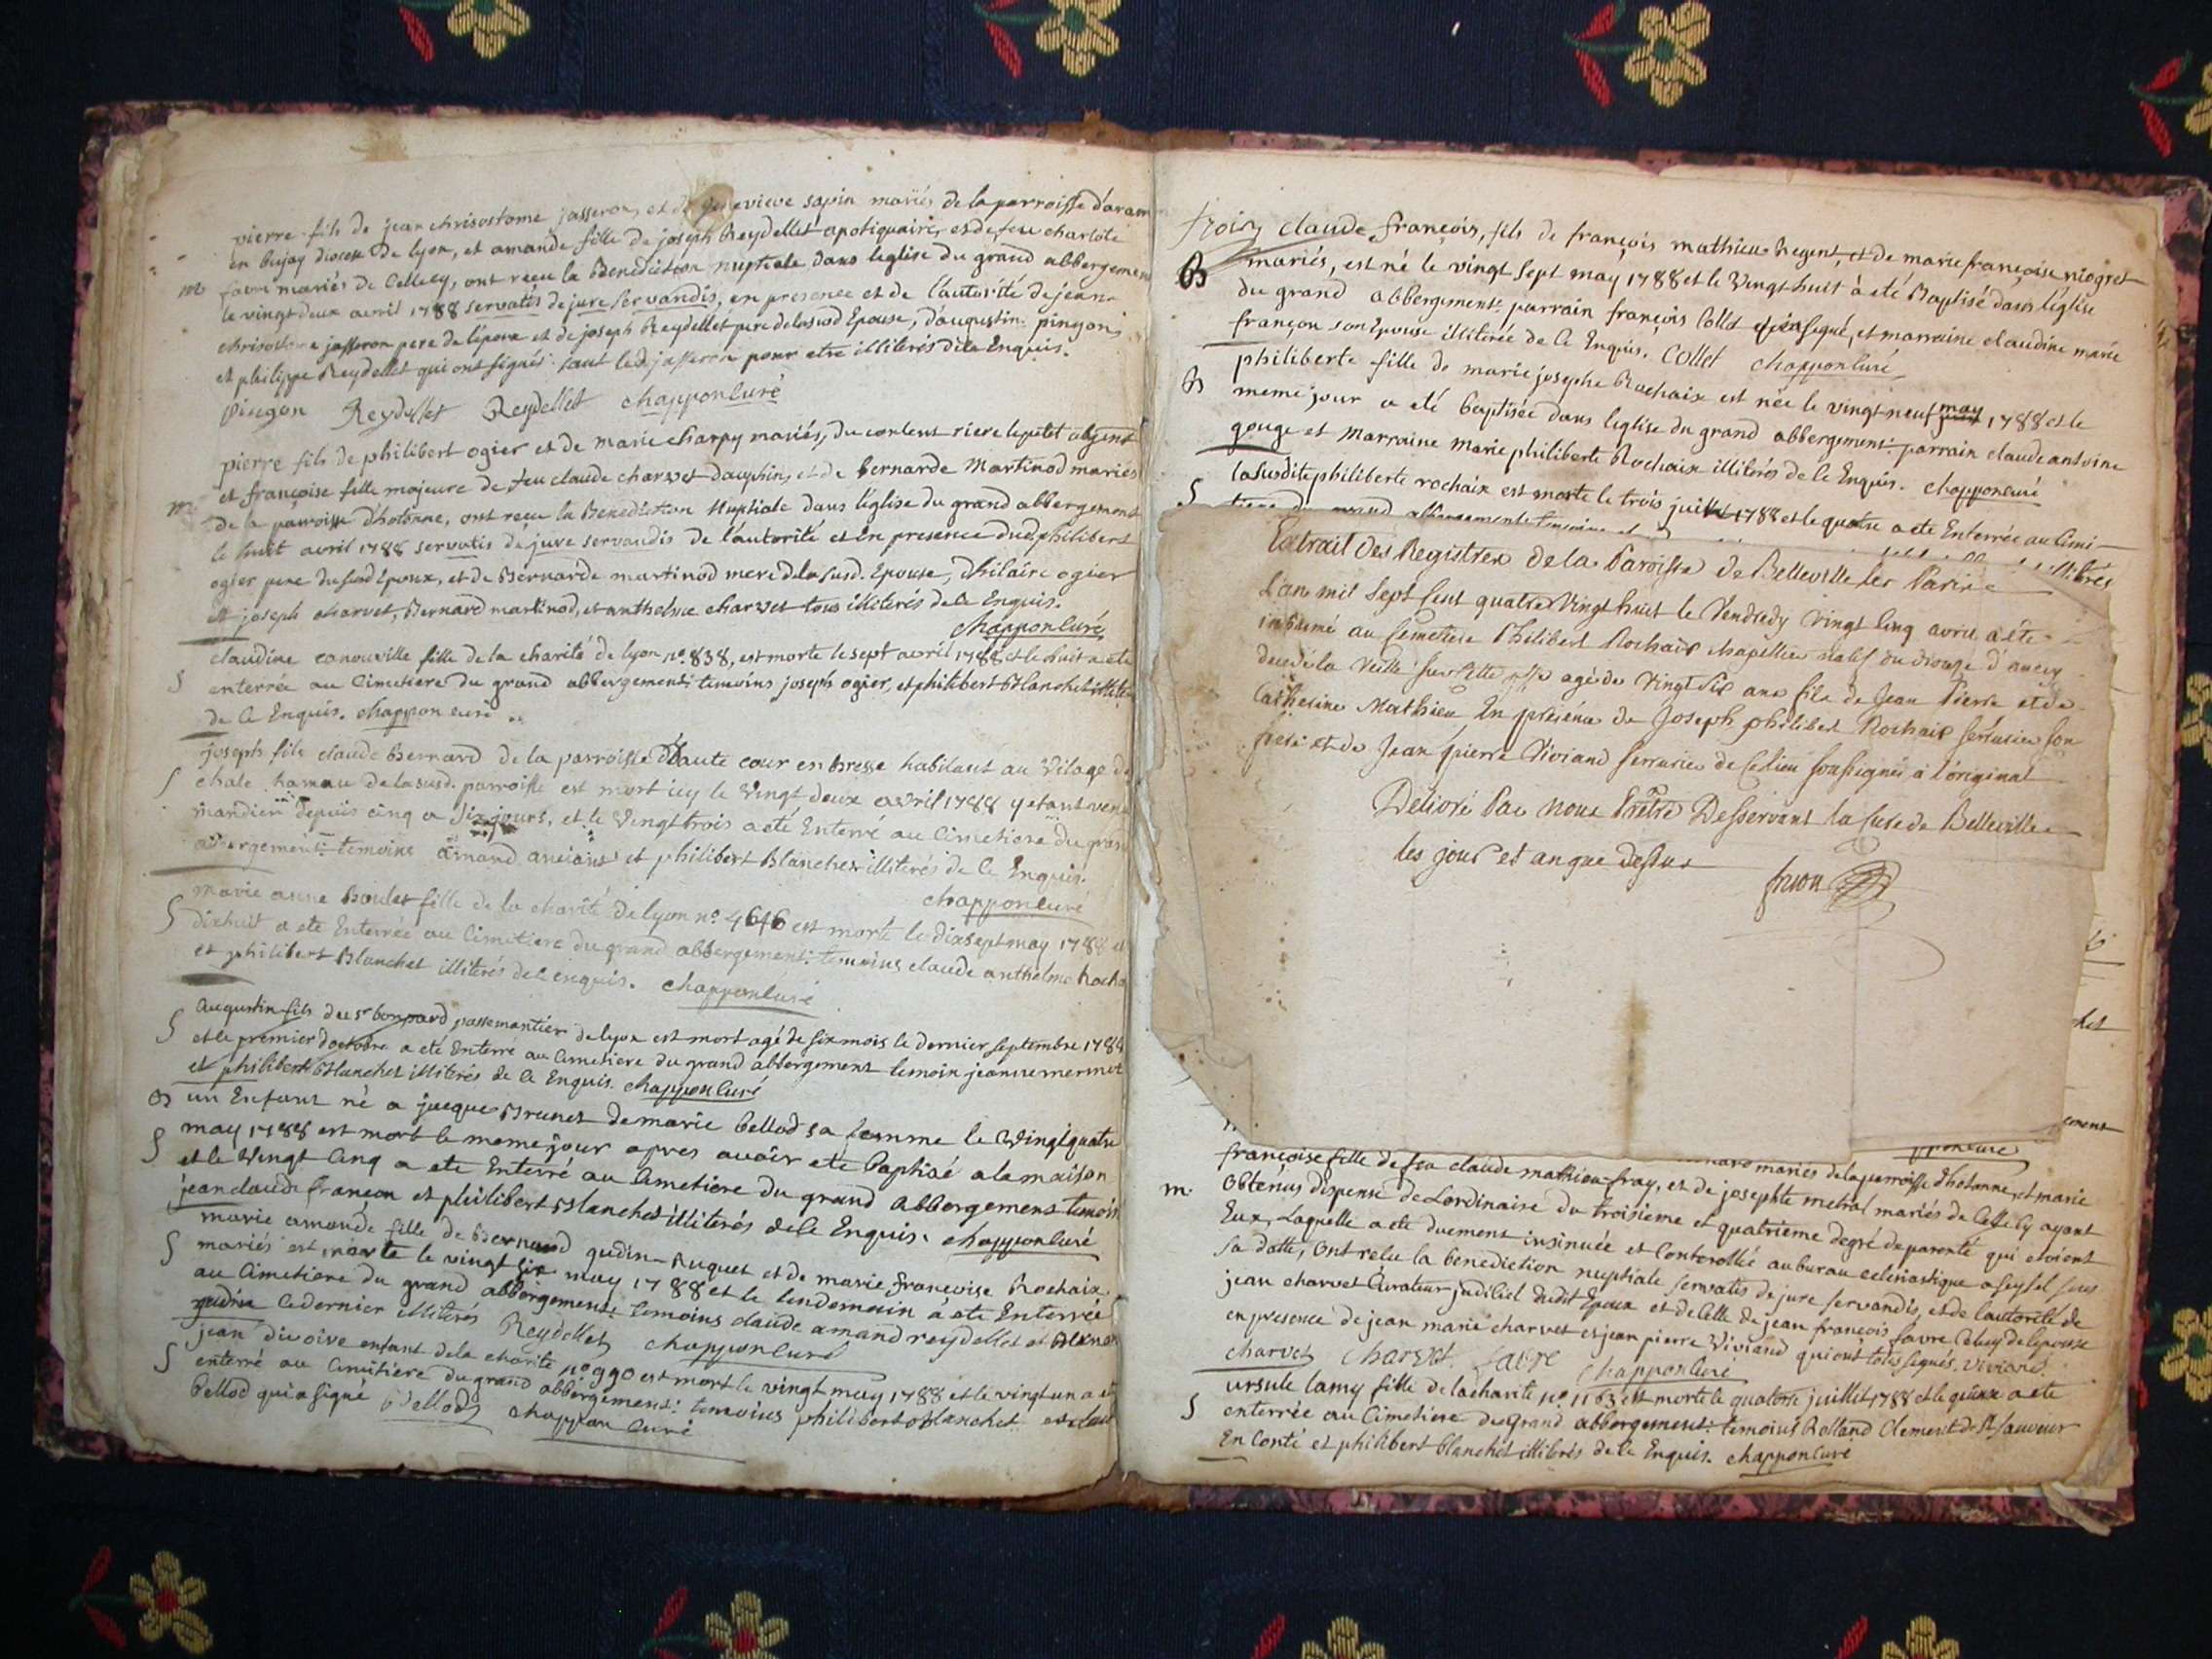 pierre fils de jean chrisostome jasseron, et de genevieve sapin mariés de la parroisse d'aram
en bujay diocese de lyon, et amande fille de joseph Reydellet apotiquaire, et de feu charlote
m favre mariés de Cellecy, ont reçu la Benediction nuptiale dans leglise du grand abbergement
le vingt deux avril 1788 servatis de jure servandis, en presence et de l'autorité de jean
chrisostome jasseron pere de lépoux et de joseph Reydellet pere de la susd Epouse, d'augustin pingon
et philippe Reydellet qui ont signés sauf led jasseron pour etre illiterés de ce Enquis.
pingon Reydellet Reydellet chappon curé
pierre fils de philibert ogier et de marie charpy mariés, du riere le petit abergt
et françoise fille majeure de feu claude charvet dauphin, et de bernarde Martinod mariés
m de la parroisse d'hotonne, ont reçu la Benediction Nuptiale dans l'église du grand abbergement
le huit avril 1788 servatis de jure servandis de l'autorité et En presence dud philibert
ogier pere du susd Epoux, et de Bernarde martinod mere de la susd. Epouse, d'hilaire ogier
et joseph charvet, Bernard martinod, et anthelme charvet tous illiterés de ce Enquis.
chappon curé
claudine canouville fille de la charité de lyon n° 838, est morte le sept avril 1788 et le huit a eté
S enterrée au Cimetiere du grand abbergement: temoins joseph ogier, et philibert Blanchet illiterés
de ce Enquis. chappon curé
joseph fils claude Bernard de la parroisse D'haute cour en bresse habitant au Vilage de
S chale hamau de la susd. parroisse est mort icy le Vingt deux avril 1788 y etant venu
mandier depuis cinq a six jours, et le Vingt trois a eté Enterré au Cimetiere du grand
abbergement: temoins amand et philibert Blanchet illiterés de ce Enquis.
chappon curé
marie anne Boulet fille de la charité de lyon n° 4646 est morte le dix sept may 1788 et
S dixhuit a eté Enterrée au Cimetiere du grand abbergement: temoins claude anthelme Rocha
et philibert Blanchet illiterés de ce enquis. chappon curé
augustin fils du Sr bonnard passemantier de lyon est mort agé de six mois le dernier septembre 1788
S et le premier d'octobre a eté Enterré au Cimetiere du grand abbergement temoin jean mermet
et philibert Blanchet illiterés de ce Enquis. chappon curé
B un Enfant né a jacque Brunet de marie bellod sa femme le Vingt quatre
S may 1788 est mort le meme jour apres avoir eté baptisé a la maison
et le Vingt cinq a eté Enterré au Cimetiere du grand abbergement temoin
jean claude françon et philibert Blanchet illiterés de ce Enquis. chappon curé
marie amande fille de Bernard gudin-huguet et de marie françoise Rochaix
S mariés est morte le vingt six may 1788 et le lendemain à eté Enterrée
au Cimetiere du grand abbergement: temoins claude amand reydellet et
gudin ce dernier illiterés Reydellet chappon curé
jean divoire enfant de la charité n° 990 est mort le vingt may 1788 et le vingt un a eté
S enterré au Cimetiere du grand abbergement: temoins philibert Blanchet et claude
bellod qui a signé Bellod chappon curé
claude françois, fils de françois mathieu Regent, et de marie françoise niogret
B mariés, est né le vingt sept may 1788 et le Vingt huit à eté Baptisé dans l'église
du grand abbergement: parrain françois Collet signé, et marraine claudine marie
françon son Epouse illiterée de ce Enquis. Collet chappon curé
philiberte fille de marie josephe Rochaix est née le vingt neuf may 1788 et le
B meme jour a eté baptisée dans leglise du grand abbergement: parrain claude antoine
gouge et Marraine Marie philiberte Rochaix illiterés de ce Enquis. chappon curé
la susdite philiberte rochaix est morte le trois juillet 1788 et le quatre a eté Enterrée au Cimi-
S tiere du grand abbergement: temoins
Extrait Des Registres de la Paroisse de Belleville les Paris
L'an mil sept cent quatre Vingt huit le Vendredy Vingt cinq avril a été
inhumé au Cemetiere Philibert Rochaix chapellier natif du diocèse d'anecy
decedé la veille sur cette psse agé de Vingt six ans fils de Jean Pierre et de
Catherine Mathieu En presence de Joseph philibert Rochaix serrurier son
frere et de Jean pierre Viviand serrurier de ce lieu soussignés a l'original
Délivré Par nous Prêtre Desservant la Cure de Belleville
les jour et an que dessus
ement
mariés de la parroisse d'hotonne, et marie
françoise fille de feu claude mathieu-fray, et de josephte metral mariés de Cellecy ayant
m. obtenus dispense de Lordinaire du troisieme et quatrieme degré de parenté qui etoient
Eux, Laquelle a eté duement insinuée et Controllée au bureau eclesiastique a seyssel sous
sa datte, ont reçu la benediction nuptiale servatis de jure servandis, et de l'autorité de
jean charvet Curateur judiciel dudit Epoux et de Celle de jean françois favre de lepouse
en presence de jean marie charvet et jean pierre Viviand qui ont tous signés. Viviand.
charvet Charvet favre chappon curé
ursule lamy fille de la charité n° 1163 est morte le quatorze juillet 1788 et le quinze a eté
S enterrée au Cimetiere du Grand abbergement: temoins Rolland Clement de St sauveur
En Conté et philibert blanchet illiterés de ce Enquis. chappon curé